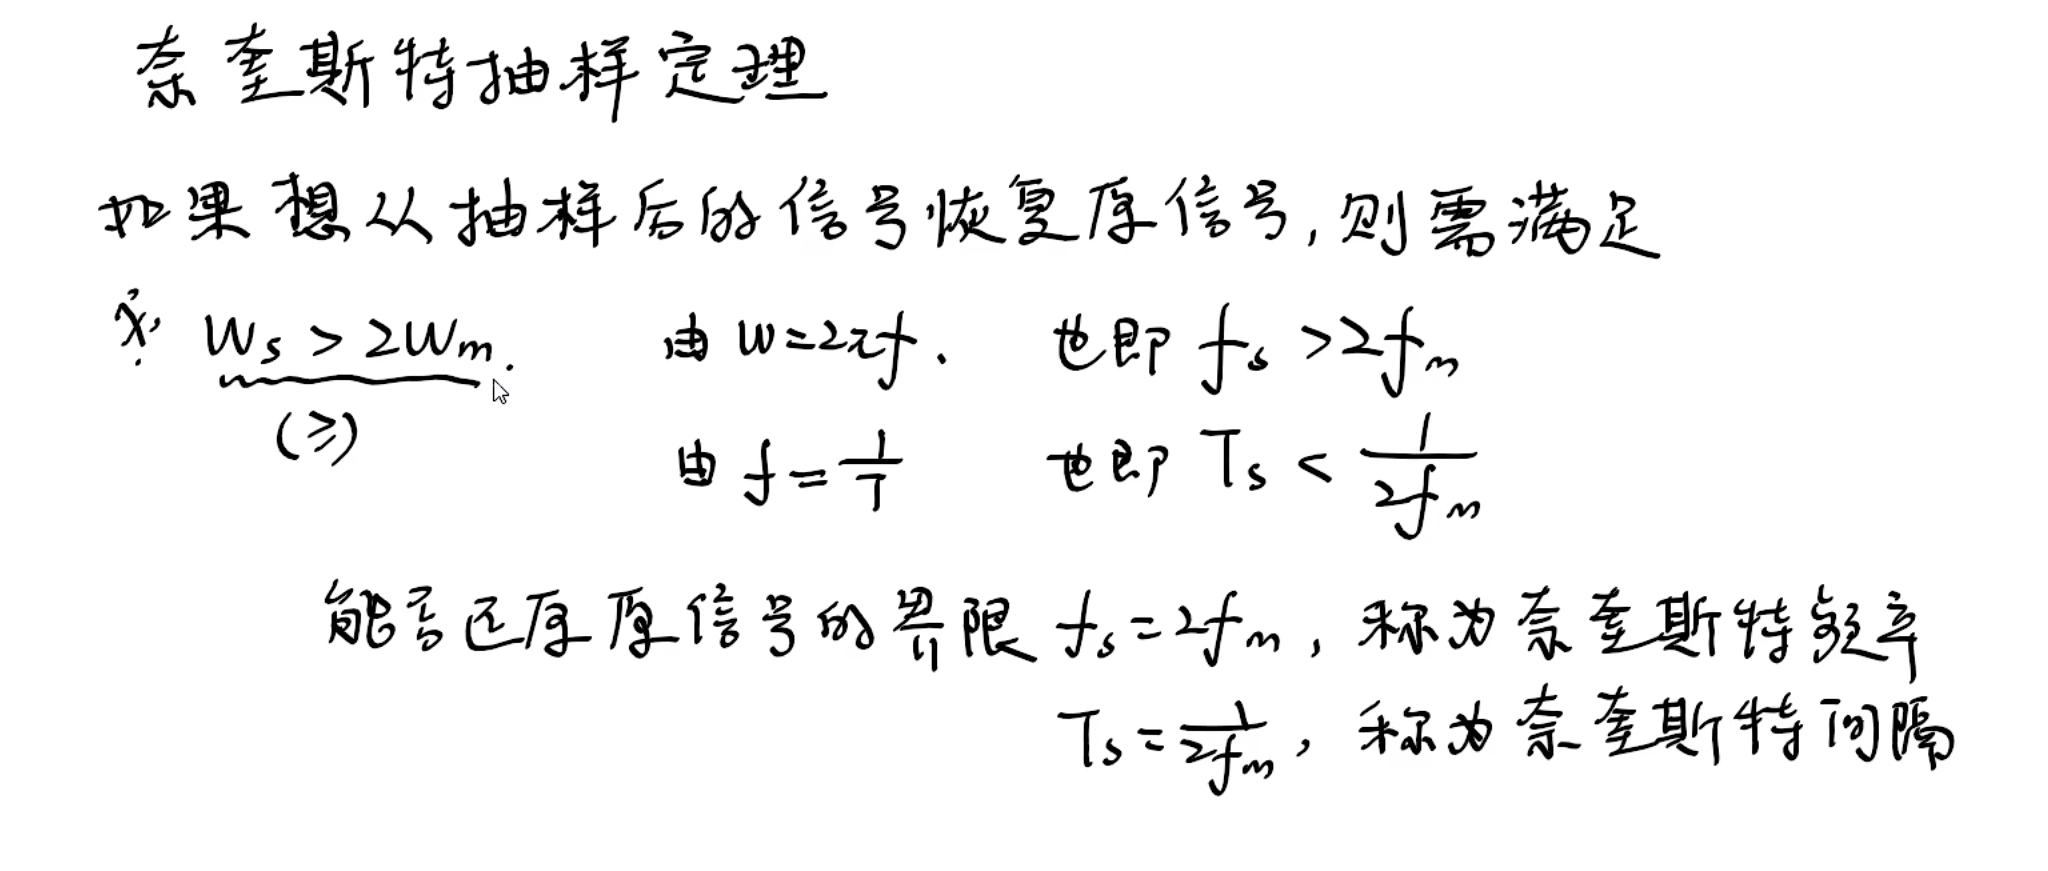 奈奎斯特抽样定理
如果想从抽样后的信号恢复原信号,则需满足
※ Ws > 2Wm. 由 W=2πf. 也即 fs >2fm
(≥) 由 f=1/T 也即 Ts < 1/2fm
能否还原原信号的界限 fs=2fm, 称为奈奎斯特频率
Ts=1/2fm, 称为奈奎斯特间隔